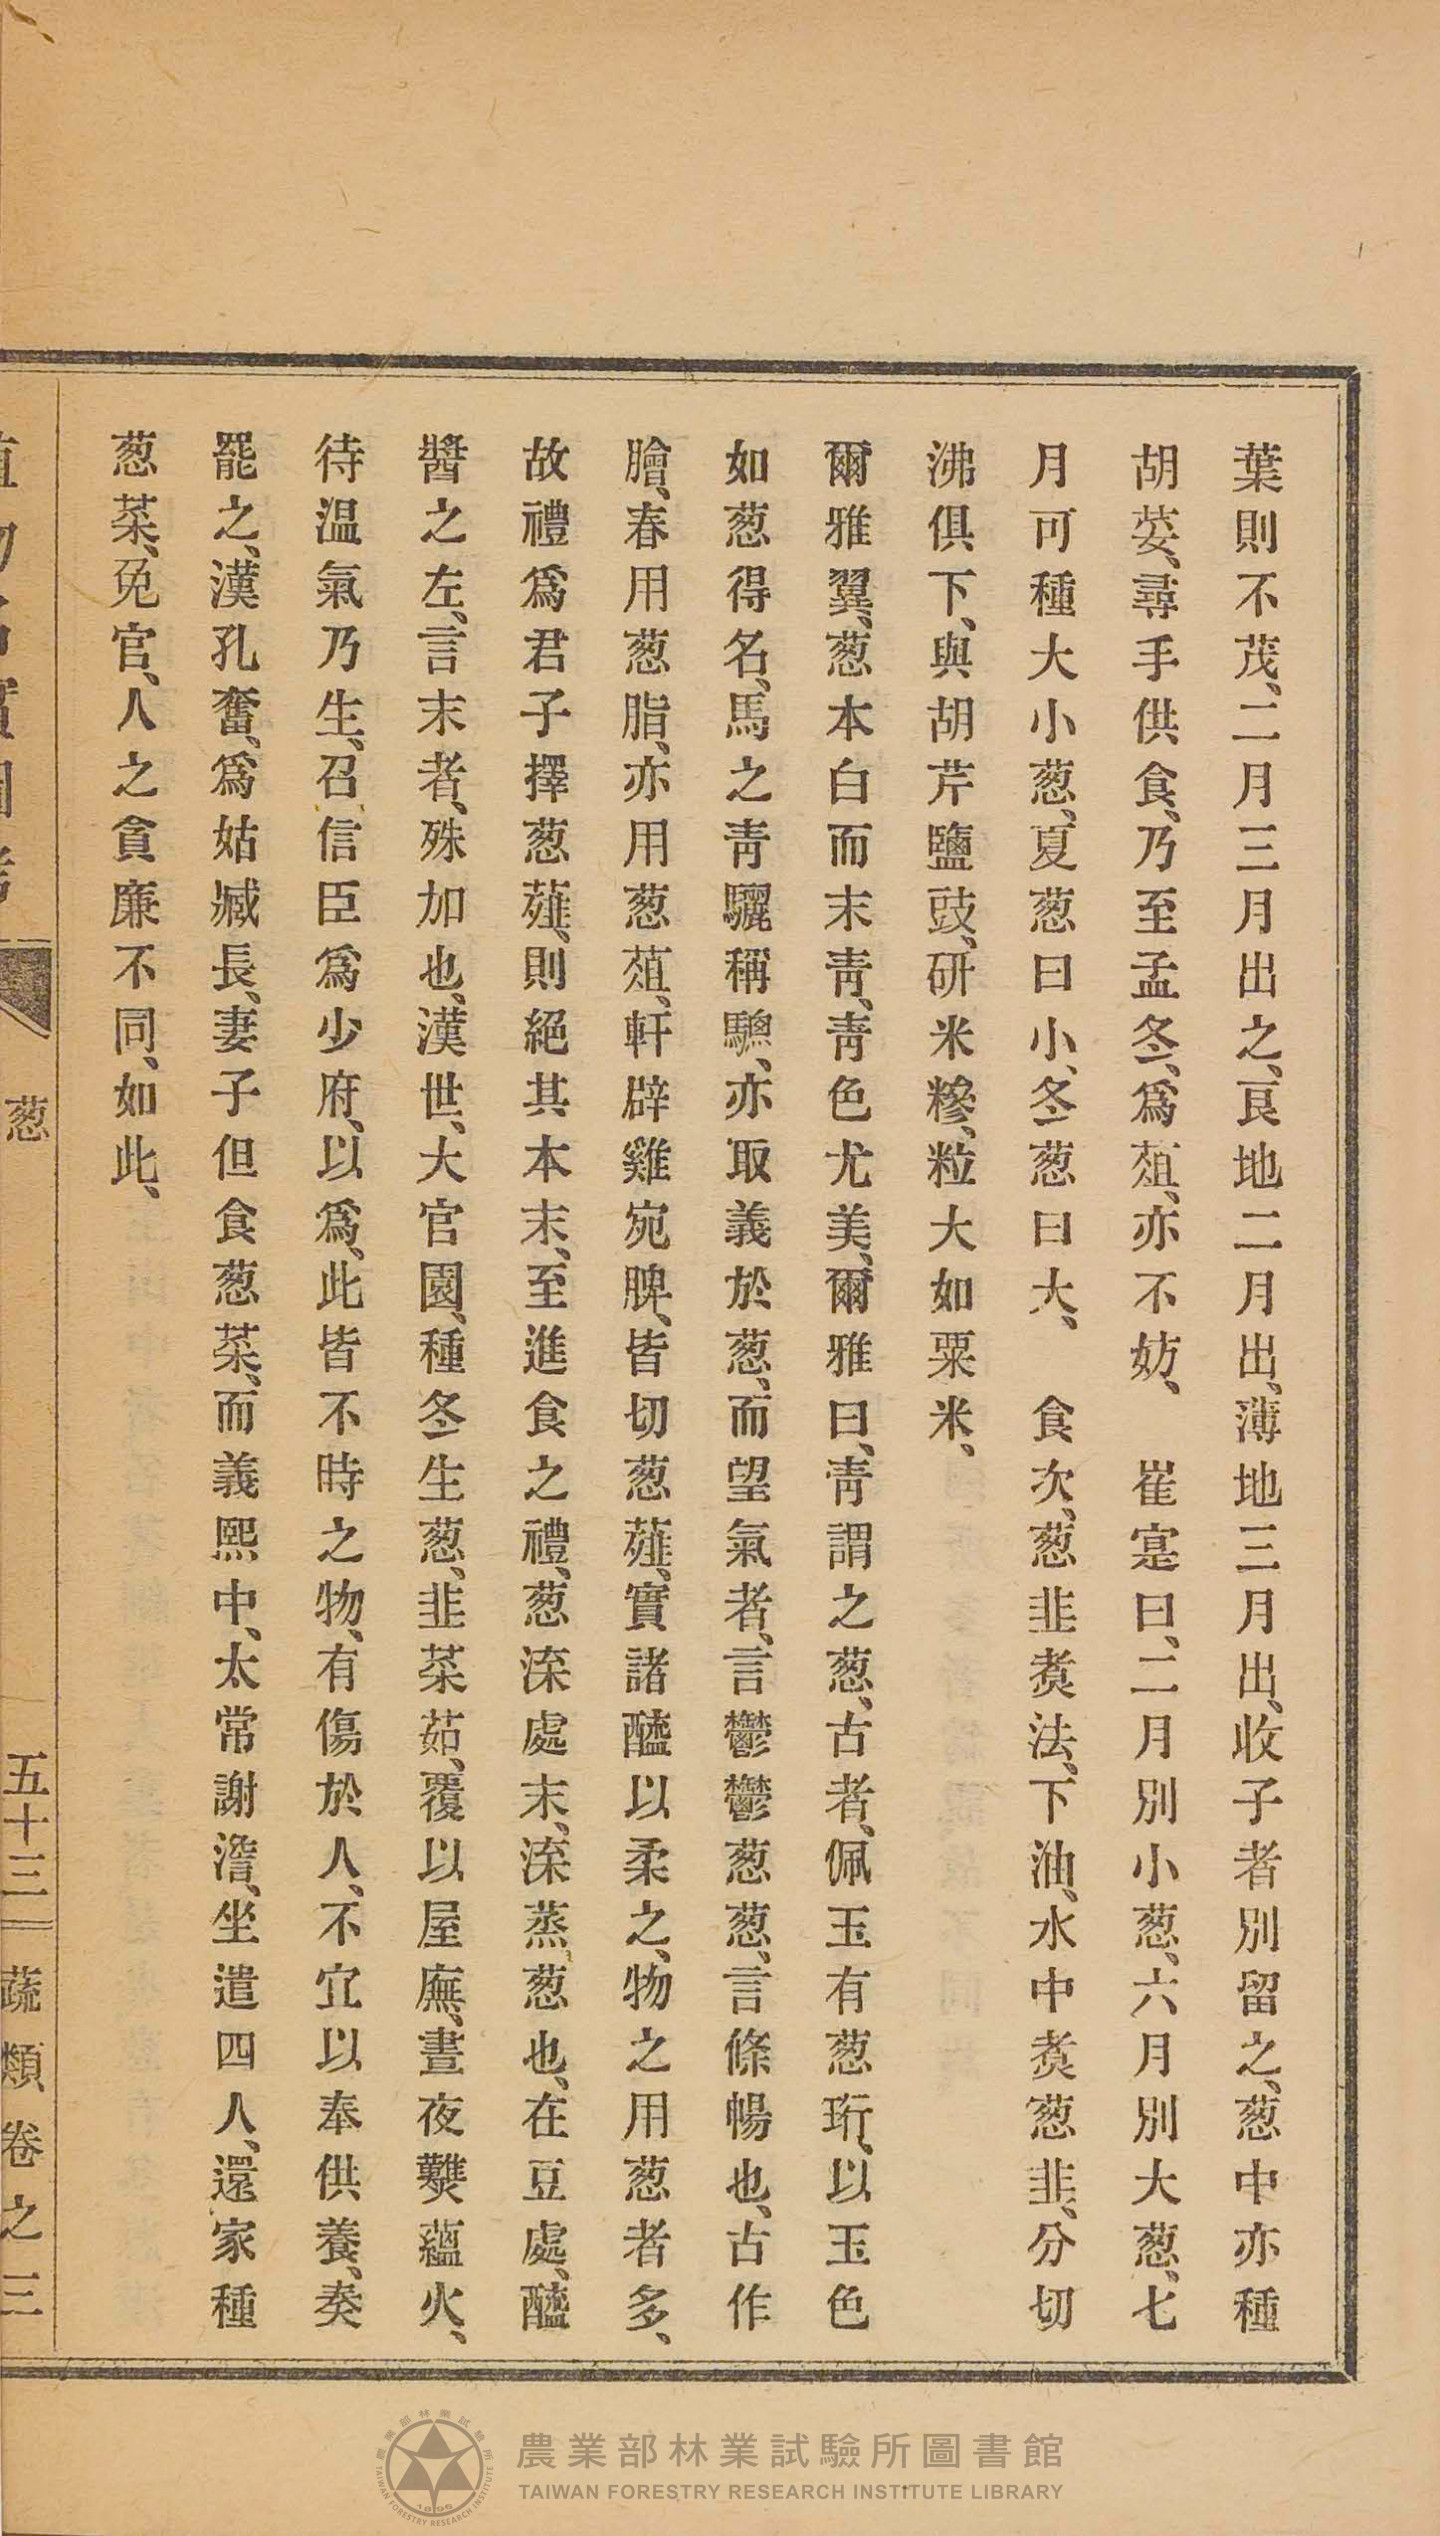 葉則不茂、二月三月出之、良地二月出、薄地三月出、收子者別留之、葱中亦種
胡荽、尋手供食、乃至孟冬、爲葅、亦不妨、　崔寔曰、二月別小葱、六月別大葱、七
月可種大小葱、夏葱曰小、冬葱曰大、　食次、葱韭羹法、下油、水中羹葱韭、分切
沸俱下、與胡芹鹽豉、研米糝、粒大如粟米、
爾雅翼、葱本白而末靑、靑色尤美、爾雅曰、靑謂之葱、古者、佩玉有葱珩、以玉色
如葱得名、馬之靑驪稱驄、亦取義於葱、而望氣者、言鬱鬱葱葱、言條暢也、古作
膾、春用葱脂、亦用葱葅、軒辟雞宛脾、皆切葱薤、實諸醯以柔之、物之用葱者多、
故禮爲君子擇葱薤、則絕其本末、至進食之禮、葱渿處末、渿蒸葱也、在豆處、醯
醬之左、言末者、殊加也、漢世、大官園、種冬生葱、韭菜茹、覆以屋廡、晝夜㸐蘊火、
待温氣乃生、召信臣爲少府、以爲、此皆不時之物、有傷於人、不宜以奉供養、奏
罷之、漢孔奮、爲姑臧長、妻子但食葱菜、而義熙中、太常謝澹、坐遣四人、還家種
葱菜、免官、人之貪廉不同、如此、
葱
五十三
蔬類卷之三
農業部林業試驗所圖書館
TAIWAN FORESTRY RESEARCH INSTITUTE LIBRARY
農業部林業試驗所
TAIWAN FORESTRY RESEARCH INSTITUTE
1896